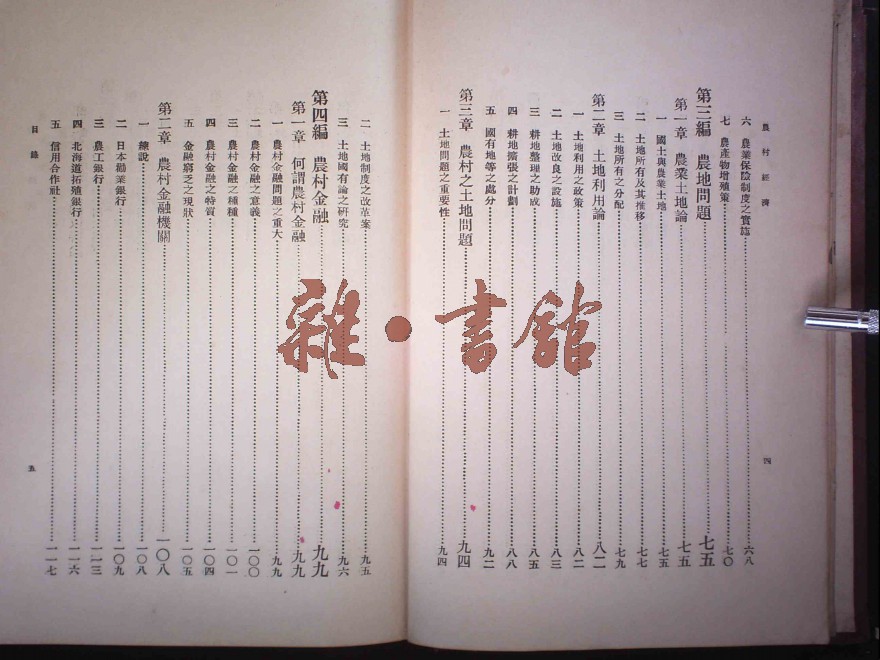 農村經濟
六 農業保險制度之實施 六八
七 農產物增殖策 七〇
第三編 農地問題 七五
第一章 農業土地論 七五
一 國土與農業土地 七五
二 土地所有及其推移 七七
三 土地所有之分配 七九
第二章 土地利用論 八二
一 土地利用之政策 八二
二 土地改良之設施 八三
三 耕地整理之助成 八五
四 耕地擴張之計劃 八八
五 國有地等之處分 九二
第三章 農村之土地問題 九四
一 土地問題之重要性 九四
四
二 土地制度之改革案 九五
三 土地國有論之研究 九六
第四編 農村金融 九九
第一章 何謂農村金融 九九
一 農村金融問題之重大 九九
二 農村金融之意義 一〇〇
三 農村金融之種種 一〇一
四 農村金融之特質 一〇四
五 金融窮乏之現狀 一〇五
第二章 農村金融機關 一〇八
一 總說 一〇八
二 日本勸業銀行 一〇九
三 農工銀行 一一三
四 北海道拓殖銀行 一一六
五 信用合作社 一一七
目錄
五
雜·書館